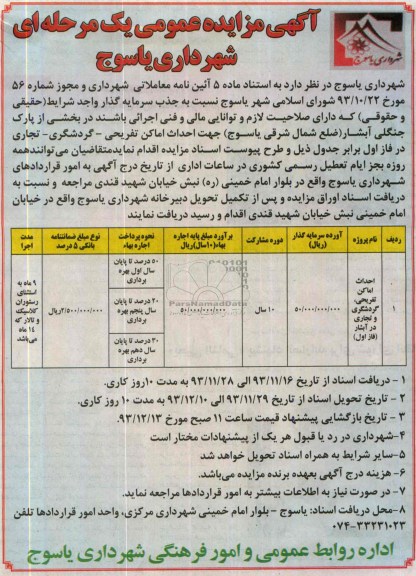 آگهی مزایده عمومی یک مرحله ای
شهرداری یاسوج
شهرداری یاسوج
شهرداری یاسوج در نظر دارد به استناد ماده ۵ آئین نامه معاملاتی شهرداری و مجوز شماره ۵۶
مورخ ۹۳/۱۰/۲۲ شورای اسلامی شهر یاسوج نسبت به جذب سرمایه گذار واجد شرایط(حقیقی
و حقوقی) که دارای صلاحیت لازم و توانایی مالی و فنی اجرائی باشند در بخشی از پارک
جنگلی آبشار(ضلع شمال شرقی یاسوج) جهت احداث اماکن تفریحی – گردشگری- تجاری
در فاز اول برابر جدول ذیل و طرح پیوست اسناد مزایده اقدام نمایدمتقاضیان می‌توانندهمه
روزه بجز ایام تعطیل رسمی کشوری در ساعات اداری از تاریخ درج آگهی به امور قراردادهای
شهرداری یاسوج واقع در بلوار امام خمینی (ره) نبش خیابان شهید قندی مراجعه و نسبت به
دریافت اسناد اوراق مزایده و پس از تکمیل تحویل دبیرخانه شهرداری یاسوج واقع در خیابان
امام خمینی نبش خیابان شهید قندی اقدام و رسید دریافت نمایند
ردیف
نام پروژه
آورده سرمایه گذار
(ریال)
دوره مشارکت
برآورد مبلغ پایه اجاره
بهاء(۱۰سال)ریال
نحوه پرداخت
اجاره بهاء
نوع مبلغ ضمانتنامه
بانکی ۵ درصد
مدت
اجرا
۱
احداث
اماکن
تفریحی،
گردشگری
و تجاری
در آبشار
(فاز اول)
۵۰/۰۰۰/۰۰۰/۰۰۰
۱۰ سال
۵۰/۰۰۰/۰۰۰/۰۰۰
۵۰ درصد تا پایان
سال اول بهره
برداری
۲۰ درصد تا پایان
سال پنجم بهره
برداری
۳۰ درصد تا پایان
سال دهم بهره
برداری
۲/۵۰۰/۰۰۰/۰۰۰ریال
۹ ماه به
استثنای
رستوران
کلاسیک
و تالار که
۱۴ ماه
می‌باشد
ParsNamadData
۱ - دریافت اسناد از تاریخ ۹۳/۱۱/۱۶ الی ۹۳/۱۱/۲۸ به مدت ۱۰روز کاری.
۲ - تاریخ تحویل اسناد از تاریخ ۹۳/۱۱/۲۹ الی ۹۳/۱۲/۱۰ به مدت ۱۰ روز کاری.
۳ - تاریخ بازگشایی پیشنهاد قیمت ساعت ۱۱ صبح مورخ ۹۳/۱۲/۱۳.
۴-شهرداری در رد یا قبول هر یک از پیشنهادات مختار است
۵-سایر شرایط به همراه اسناد تحویل خواهد شد
۶- هزینه درج آگهی بعهده برنده مزایده می‌باشد.
۷- در صورت نیاز به اطلاعات بیشتر به امور قراردادها مراجعه نماید.
۸-محل دریافت اسناد: یاسوج - بلوار امام خمینی شهرداری مرکزی، واحد امور قراردادها تلفن
۰۷۴-۳۳۲۲۱۰۲۳
اداره روابط عمومی و امور فرهنگی شهرداری یاسوج